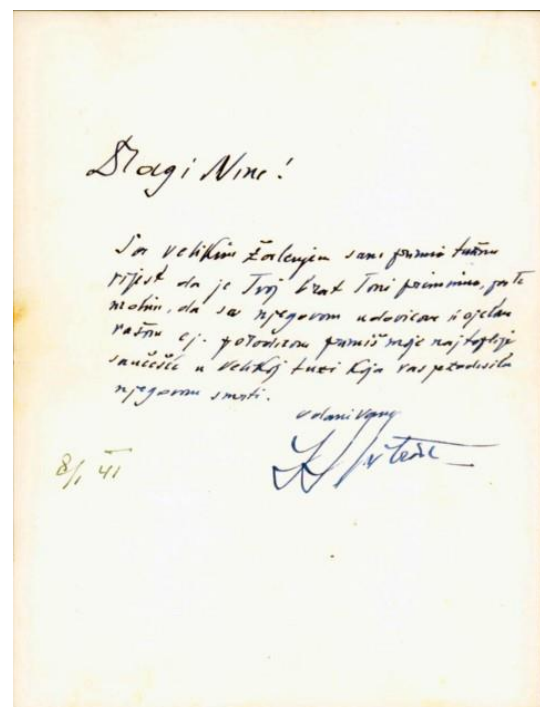 Dragi Nine!
Sa velikim žalenjem sam primio tužnu
vijest da je Tvoj brat Toni preminuo, pa Te
molim, da sa njegovom udovicom i cijelom
vašom cj. porodicom primiš moje najtoplije
saučešće u velikoj tuzi koja vas je zadesila
njegovom smrti.
odani Vam
8/I 41